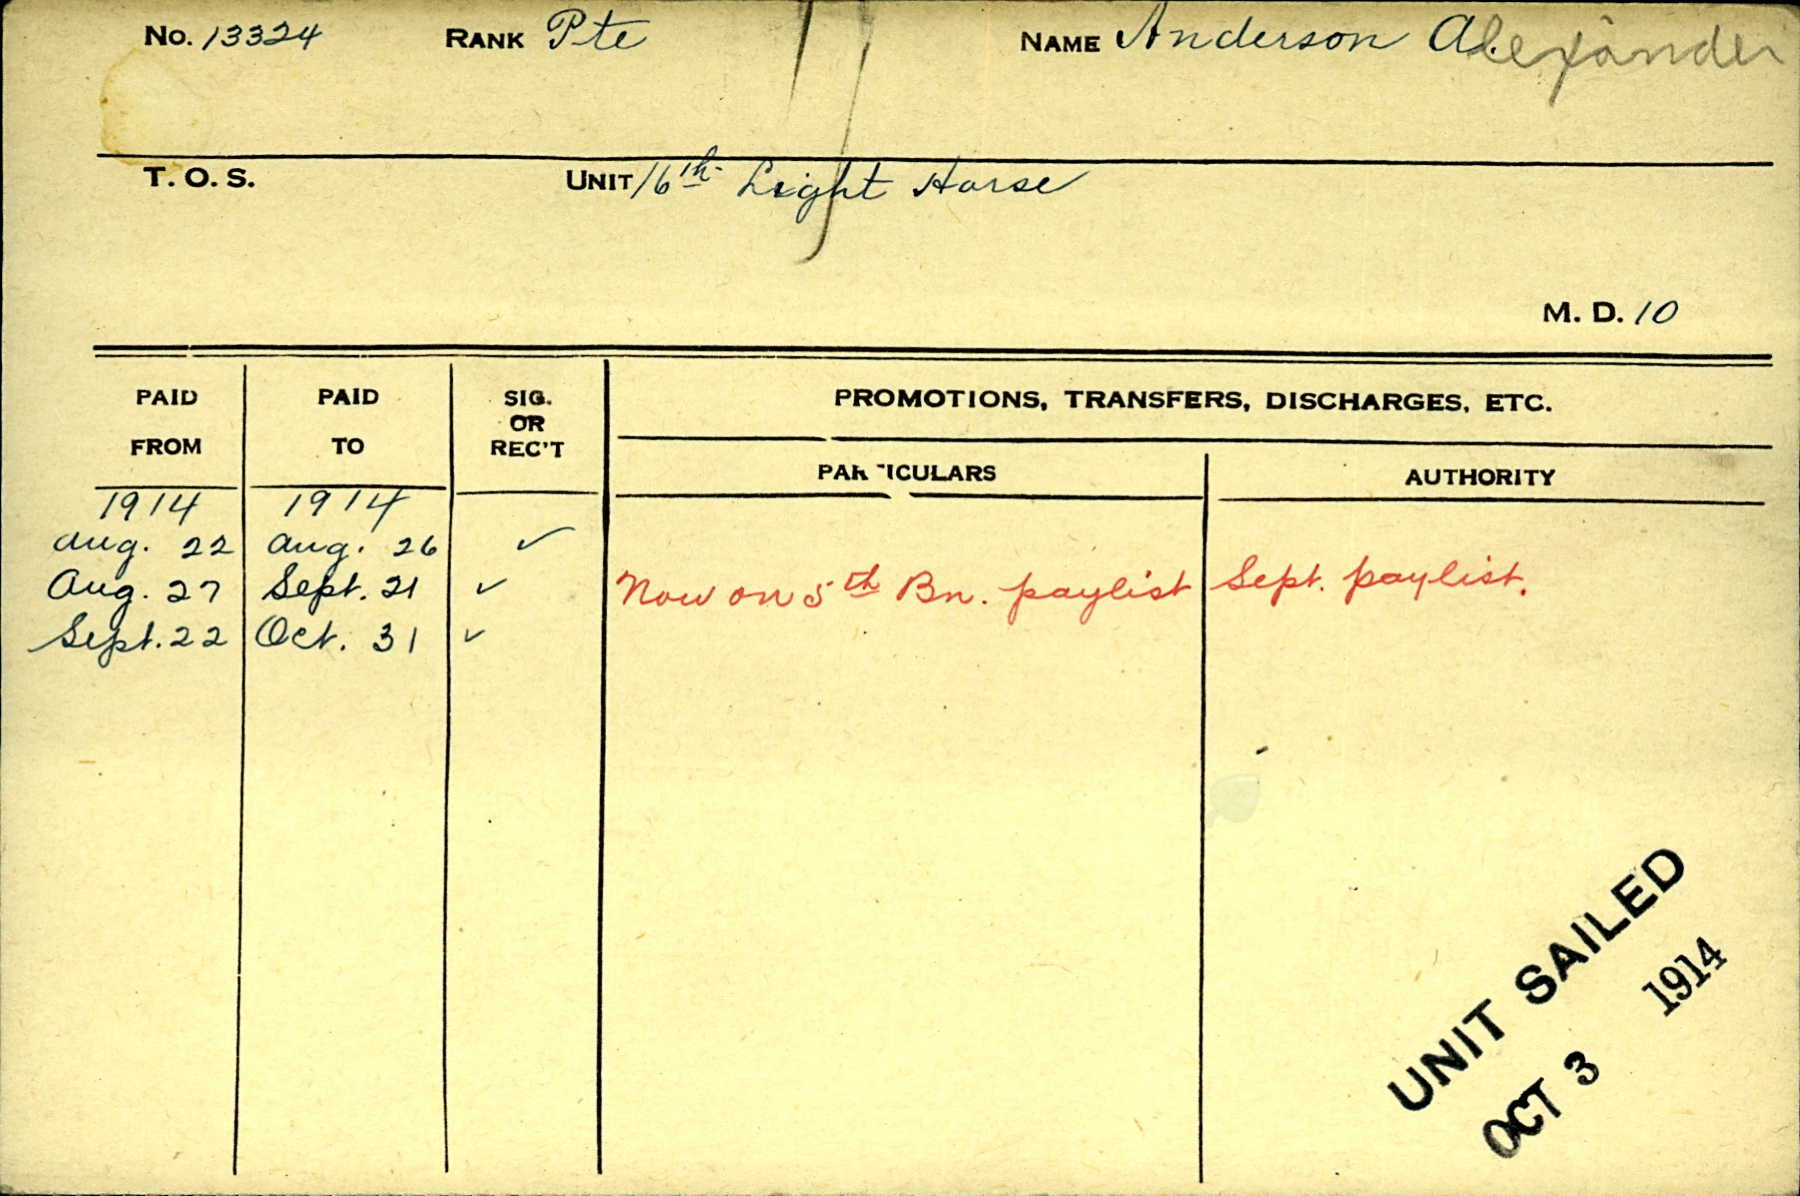 No. 13324 RANK Pte NAME Anderson Alexander
T. O. S. UNIT 16th Light Horse
M. D. 10
PAID FROM PAID TO SIG. OR REC'T PROMOTIONS, TRANSFERS, DISCHARGES, ETC.
PARTICULARS AUTHORITY
1914 1914
Aug. 22 Aug. 26 ✓
Aug. 27 Sept. 21 ✓ Now on 5th Bn. paylist Sept. paylist.
Sept. 22 Oct. 31 ✓
UNIT SAILED
OCT 3 1914